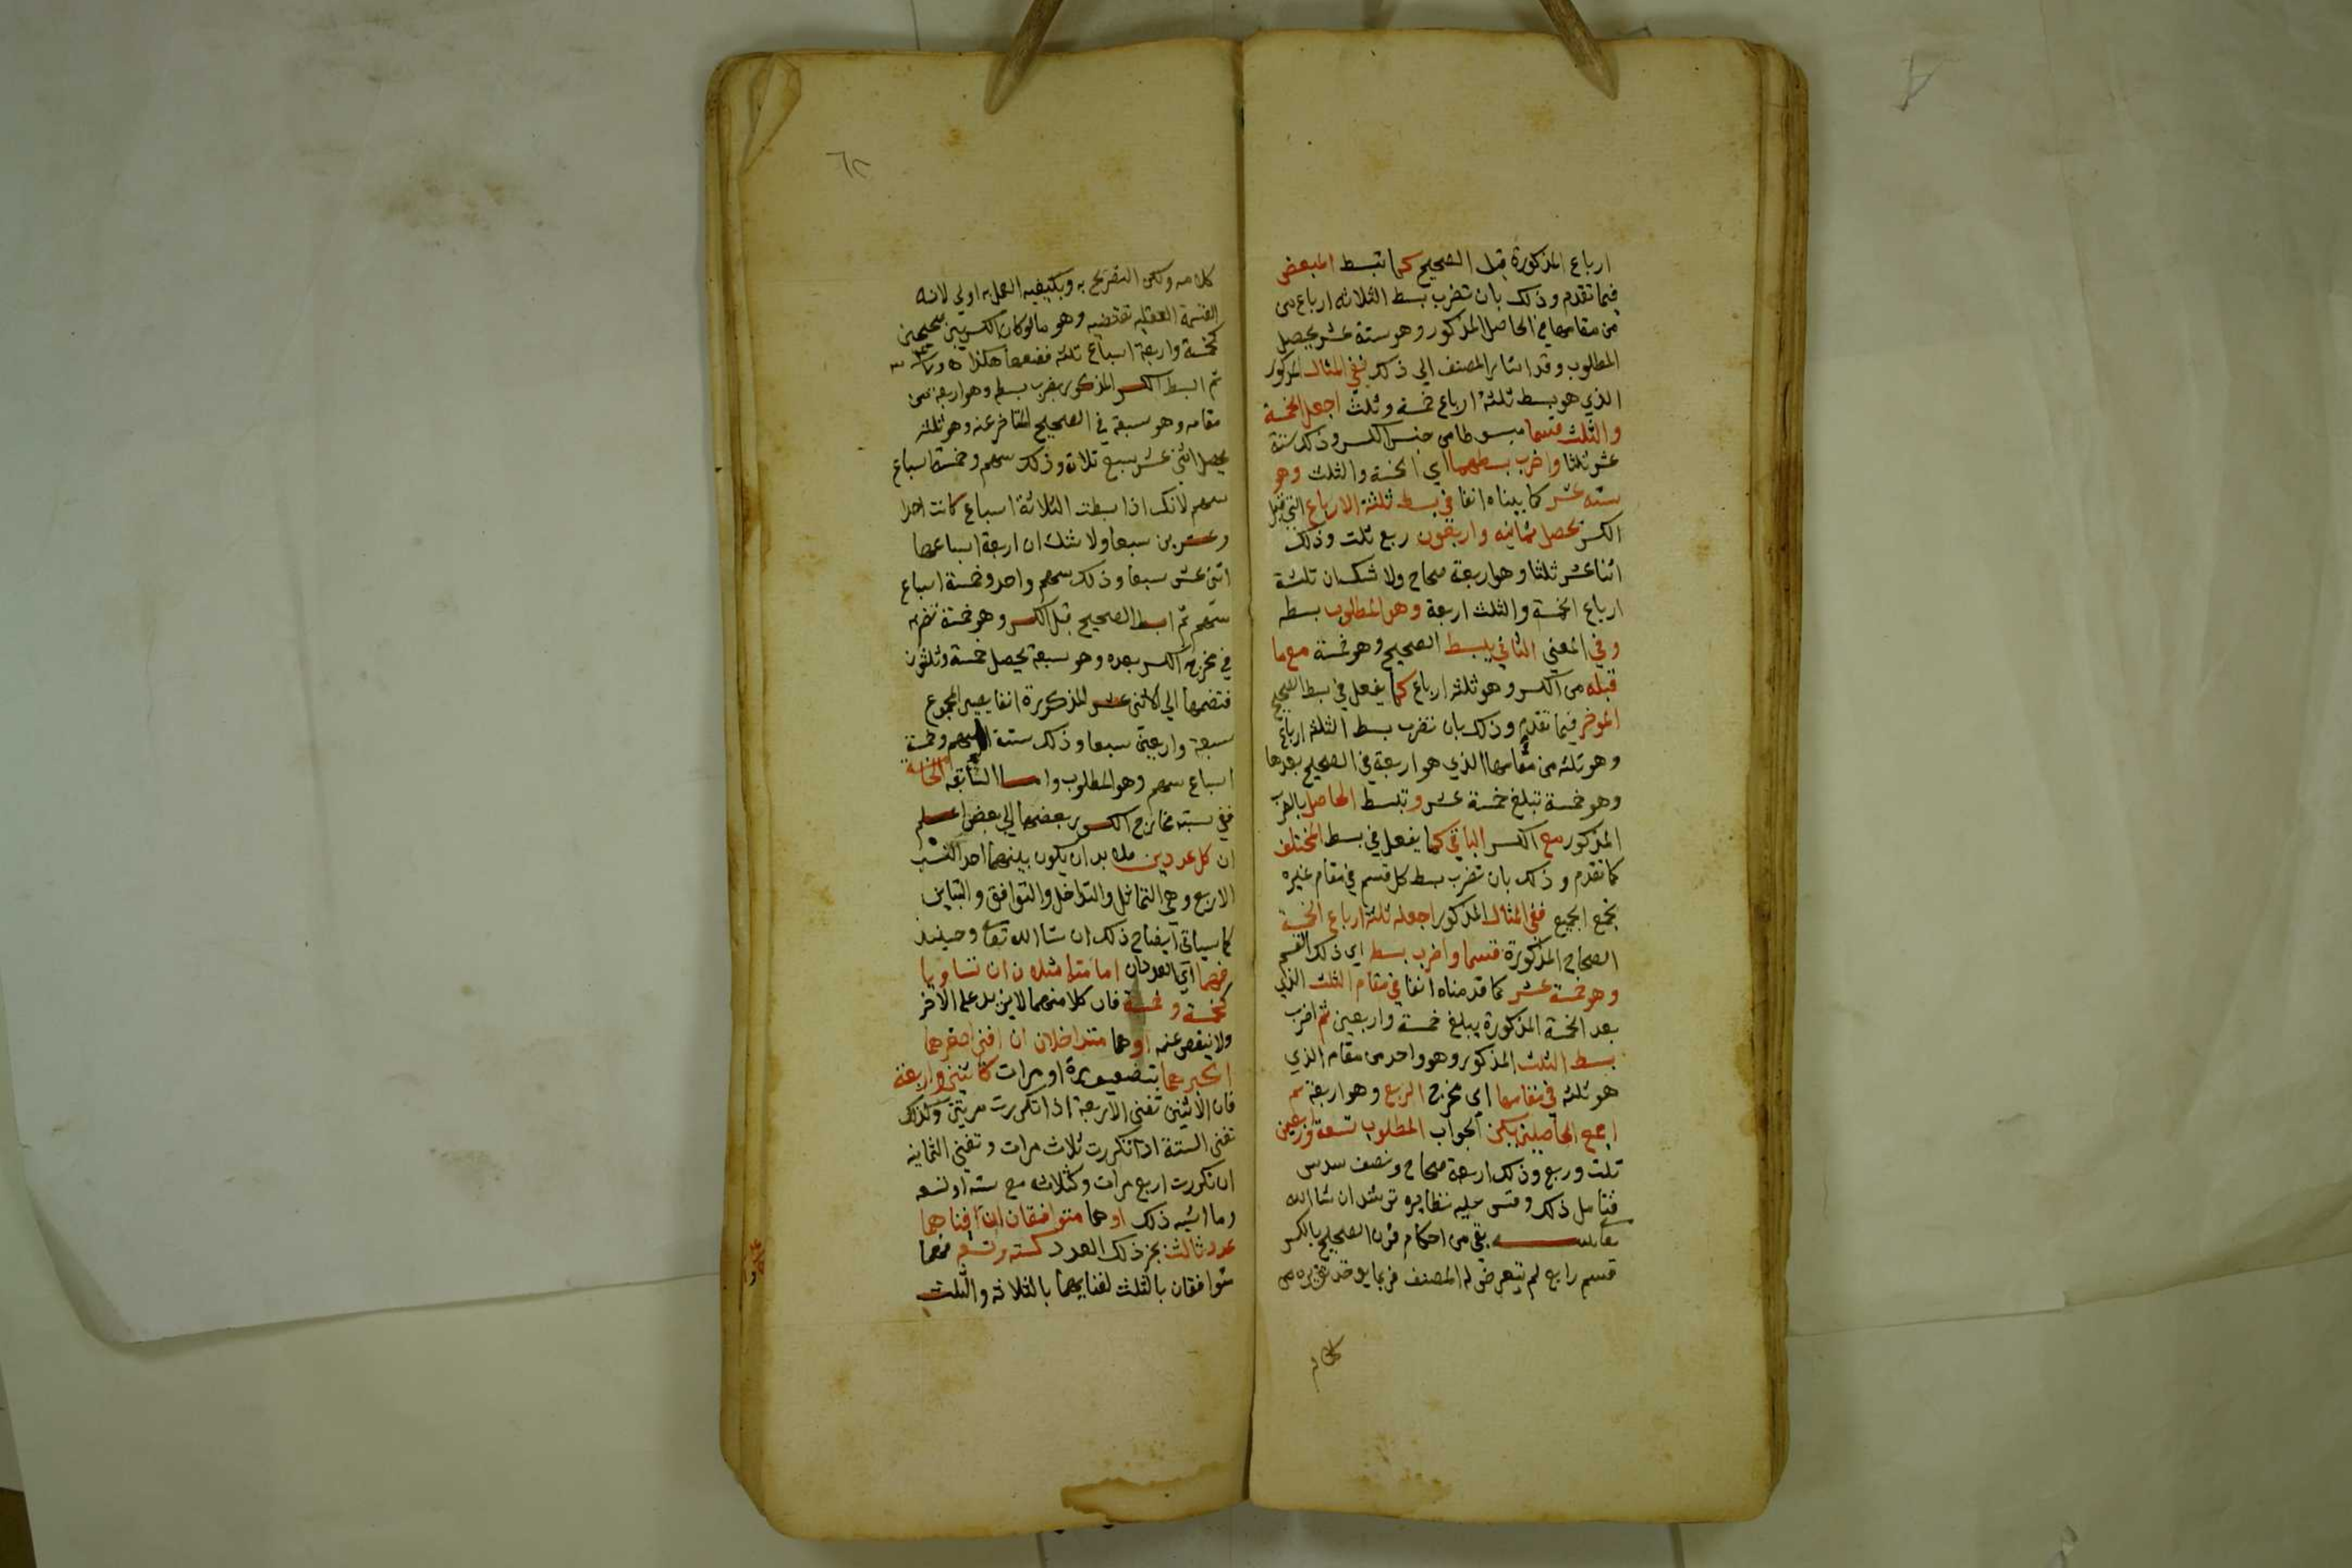 ارباع المذكورة قبل الصحيح كما تبسط المبعض
فيما تقدم وذلك بان تضرب بسط الثلاثه ارباع من
من مقامها في الحاصل المذكور وهو ستة عشر يحصل
المطلوب وقد اشار المصنف الي ذلك ففي المثال المذكور
الذي هو بسط ثلثة ارباع خمسة وثلث اجعل الخمسة
والثلث قسما مبسوطا من جنس الكسر وذلك ستة
عشر ثلثا واضرب بسطهما اي الخمسة والثلث وهو
سته عشر كما بيناه انفا في بسط ثلثة الارباع التي قبل
الكسر يحصل ثمانيه واربعون ربع ثلث وذلك
اثنا عشر ثلثا وهو اربعة صحاح ولا شك ان ثلثة
ارباع الخمسة والثلث اربعة وهو المطلوب بسطه
وفي المعني الثاني يبسط الصحيح وهو خمسة مع ما
قبله من الكسر وهو ثلثه ارباع كما يفعل في بسط الصحيح
الموخر فيما تقدم وذلك بان تضرب بسط الثلثه ارباع
وهو ثلثه من مقامها الذي هو اربعة في الصحيح بعدها
وهو خمسة تبلغ خمسة عشر وتبسط الحاصل بالضرب
المذكور مع الكسر الباقي كما يفعل في بسط المختلف
كما تقدم وذلك بان تضرب بسط كل قسم في مقام غيره
تجمع الجميع ففي المثال المذكور اجعله ثلثة ارباع الخمسة
الصحاح المذكورة قسما واضرب بسط اي ذلك القسم
وهو خمسة عشر كما قدمناه انفا في مقام الثلث الذي
بعد الخمسة المذكورة يبلغ خمسة واربعين ثم اضرب
بسط الثلث المذكور وهو واحد من مقام الذي
هو ثلثه في مقامها اي مخرج الربع وهو اربعة ثم
اجمع الحاصلين يكن الجواب المطلوب تسعة واربعين
ثلث وربع وذلك اربعة صحاح ونصف سدس
فتامل ذلك وقس عليه نظايره ترشد ان شا الله
بقي من احكام قرن الصحيح بالكسر
قسم رابع لم يتعرض له المصنف فربما يوخذ تقريره من
كلامه ولكن التصريح به وبكيفيه العمل به اولي لانه
القسمة العقليه تقتضيه وهو ما لو كان الكسر بين صحيحين
كخمسة واربعة اسباع ثلثه فضعها هكذا
ثم ابسط الكسر المذكور بضرب بسطه وهو اربعة من
مقامه وهو سبعة في الصحيح المتاخر عنه وهو ثلثه
يحصل اثني عشر سبع ثلاثة وذلك سهم وخمسة اسباع
سهم لانك اذا بسطت الثلاثة اسباع كانت احدا
وعشرين سبعا ولا شك ان اربعة اسباعها
اثني عشر سبعا وذلك سهم واحد وخمسة اسباع
سهم ثم ابسط الصحيح قبل الكسر وهو خمسة تضربه
في مخرج الكسر بعده وهو سبعة يحصل خمسة وثلثون
فتضمها الي الاثني عشر المذكورة انفا يصير المجموع
سبعة واربعين سبعا وذلك ستة اسهم وخمسة
اسباع سهم وهو المطلوب واما السابقه الخاتمه
ففي نسبة مخارج الكسور بعضها الي بعض اعلم
ان كل عددين فلا بد ان يكون بينهما احد النسب
الاربع وهي التماثل والتداخل والتوافق والتباين
كما سياتي ايضاح ذلك ان شا الله تعالي وحينيذ
فهما اي العددان اما متماثلان ان تساويا
كخمسة وخمسة فان كلا منهما لا يزيد علي الاخر
ولا ينقص عنه او هما متداخلان ان افني اصغرهما
اكبرهما بتضعيفه مرة او مرات كاثنين واربعة
فان الاثنين تفني الاربعة اذا تكررت مرتين وكذلك
تفني الستة اذا تكررت ثلاث مرات وتفني الثمانيه
ان تكررت اربع مرات وكثلاثه مع سته او تسعه
وما اشبه ذلك او هما متوافقان ان افناهما
عدد ثالث بجز ذلك العدد كسته وتسعه فهما
متوافقان بالثلث لفنايهما بالثلاثه والثلث